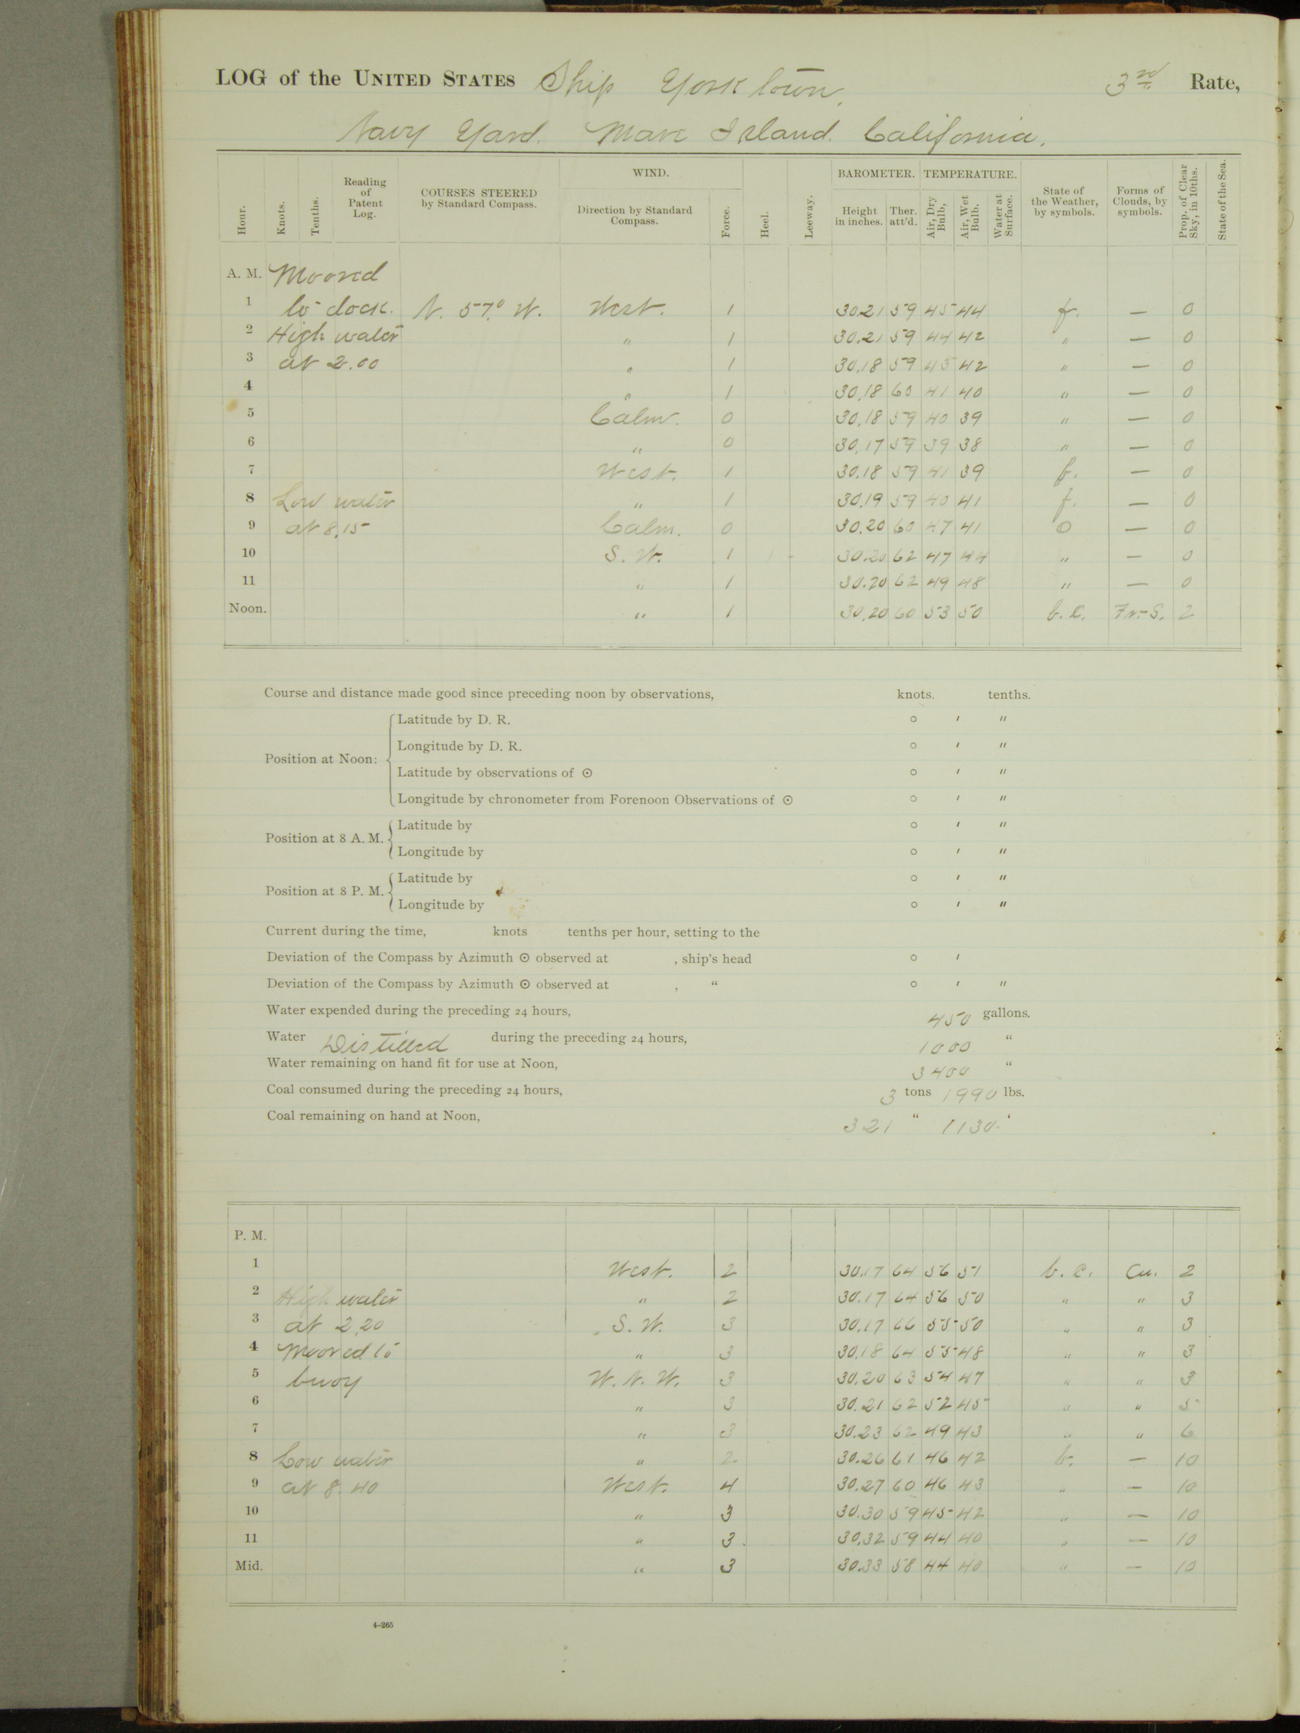 LOG of the UNITED STATES Ship Yorktown, 3rd Rate,
Navy Yard. Mare Island. California.
Hour. Knots. Tenths. Reading of Patent Log. COURSES STEERED by Standard Compass. WIND. Direction by Standard Compass. Force. Heel. Leeway. BAROMETER. Height in inches. Ther. att'd. TEMPERATURE. Air, Dry Bulb, Air, Wet Bulb. Water at Surface. State of the Weather, by symbols. Forms of Clouds, by symbols. Prop. of Clear Sky, in 10ths. State of the Sea.
A. M. Moored
1 to dock. N. 57.° W. West. 1 30.21 59 45 44 f. — 0
2 High water " 1 30.21 59 44 42 " — 0
3 at 2.00 " 1 30.18 59 43 42 " — 0
4 " 1 30.18 60 41 40 " — 0
5 Calm. 0 30.18 59 40 39 " — 0
6 " 0 30.17 59 39 38 " — 0
7 West. 1 30.18 59 41 39 f. — 0
8 Low water " 1 30.19 59 40 41 f. — 0
9 at 8.15 Calm. 0 30.20 60 47 41 O — 0
10 S. W. 1 30.20 62 47 44 " — 0
11 " 1 30.20 62 49 48 " — 0
Noon. " 1 30.20 60 53 50 b. c. Fr.-S. 2
Course and distance made good since preceding noon by observations, knots. tenths.
Position at Noon:
Latitude by D. R. ° ′ ″
Longitude by D. R. ° ′ ″
Latitude by observations of ☉ ° ′ ″
Longitude by chronometer from Forenoon Observations of ☉ ° ′ ″
Position at 8 A. M.
Latitude by ° ′ ″
Longitude by ° ′ ″
Position at 8 P. M.
Latitude by ° ′ ″
Longitude by ° ′ ″
Current during the time, knots tenths per hour, setting to the
Deviation of the Compass by Azimuth ☉ observed at , ship's head ° ′
Deviation of the Compass by Azimuth ☉ observed at , " ° ′ ″
Water expended during the preceding 24 hours, 450 gallons.
Water Distilled during the preceding 24 hours, 1000 "
Water remaining on hand fit for use at Noon, 3400 "
Coal consumed during the preceding 24 hours, 3 tons 1990 lbs.
Coal remaining on hand at Noon, 321 " 1130 "
P. M.
1 West. 2 30.17 64 56 51 b. c. Cu. 2
2 High water " 2 30.17 64 56 50 " " 3
3 at 2.20 S. W. 3 30.17 66 55 50 " " 3
4 Moored to " 3 30.18 64 55 48 " " 3
5 buoy W. N. W. 3 30.20 63 54 47 " " 3
6 " 3 30.21 62 52 45 " " 5
7 " 3 30.23 62 49 43 " " 6
8 Low water " 2 30.26 61 46 42 b. — 10
9 at 8.40 West. 4 30.27 60 46 43 " — 10
10 " 3 30.30 59 45 42 " — 10
11 " 3 30.32 59 44 40 " — 10
Mid. " 3 30.33 58 44 40 " — 10
4-265